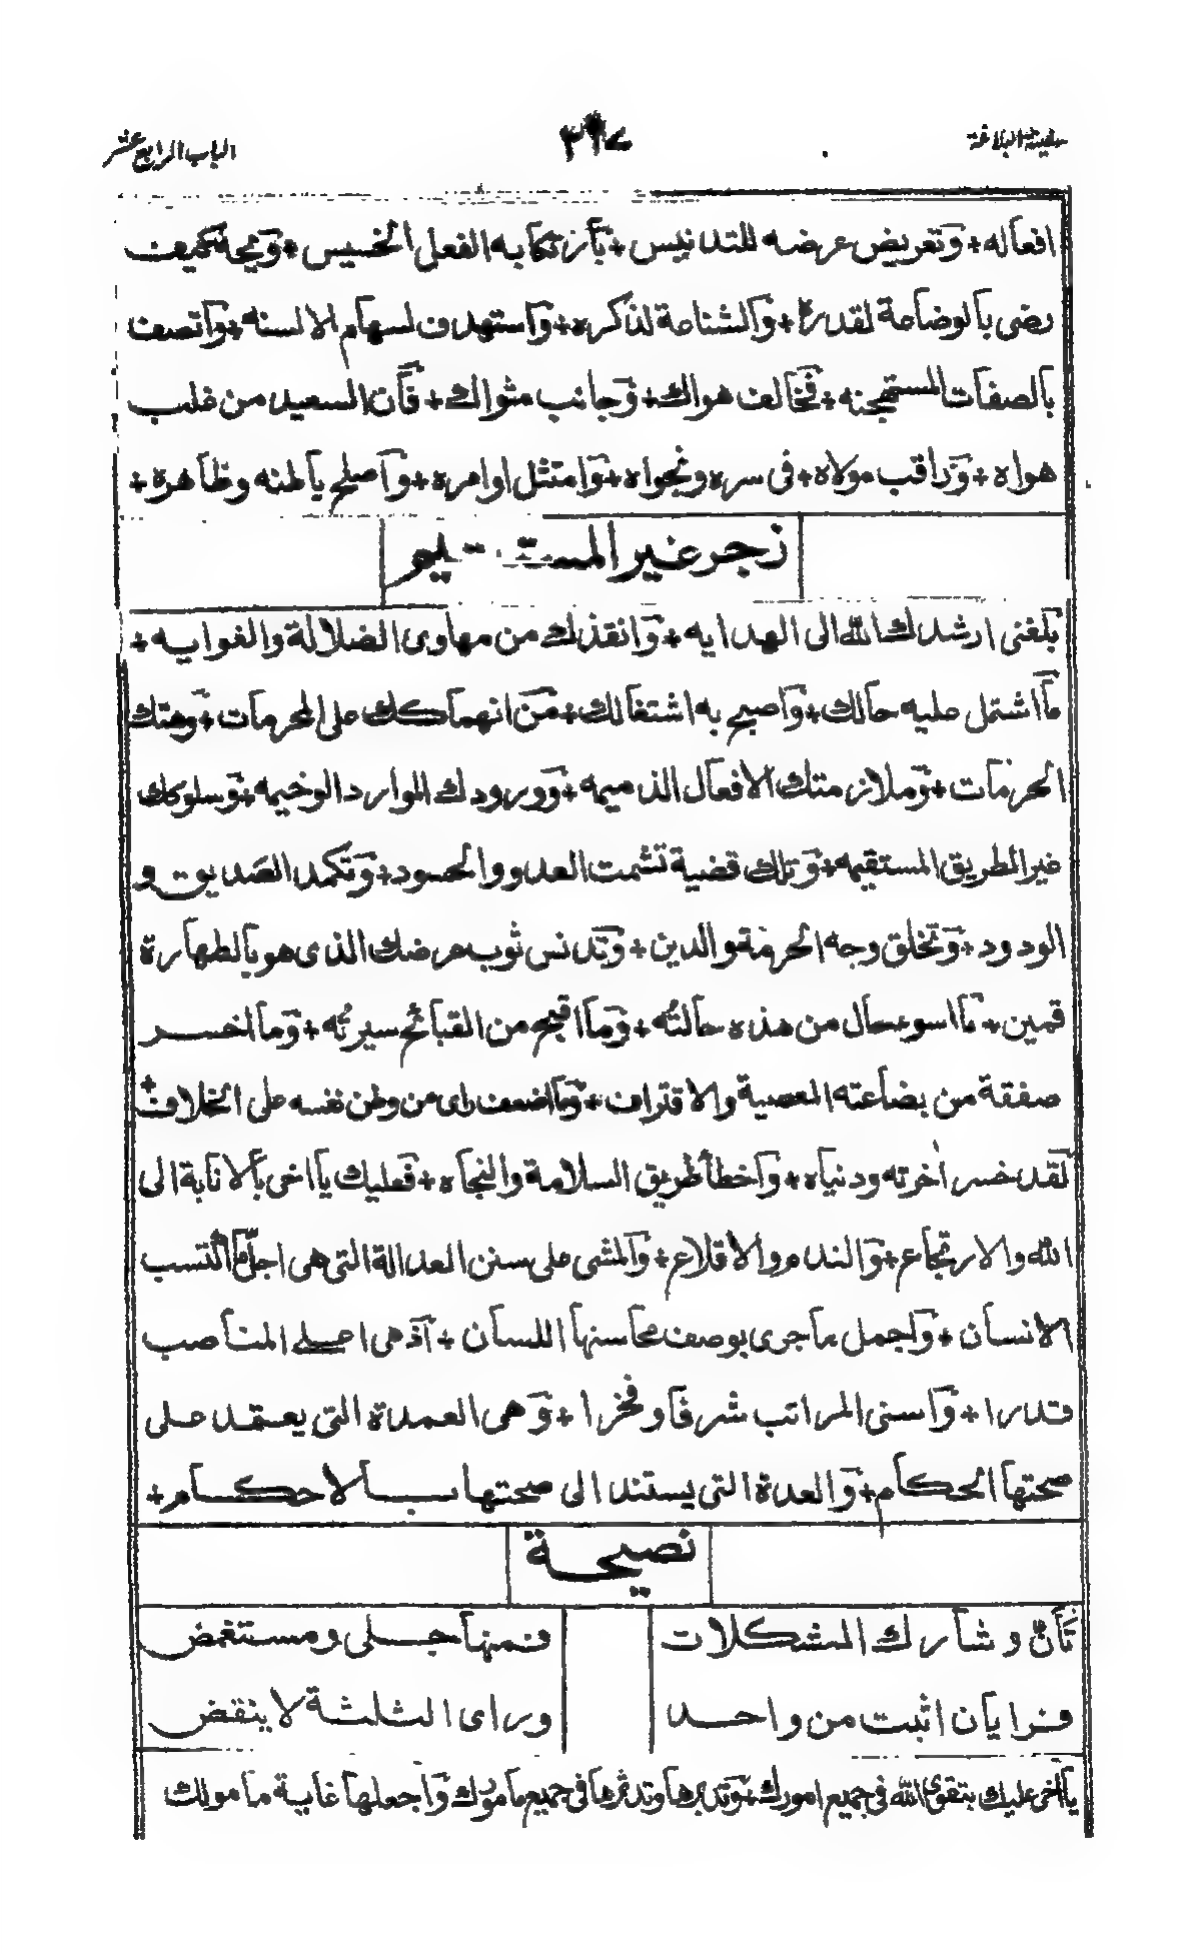 سفينة البلاغة
٣٩٧
الباب الرابع عشر
افعاله + وتعريض عرضه للتدنيس + بارتكابه الفعل الخسيس + ويحه كيف
رضى بالوضاعة لقدره + والشناعة لذكره + واستهدف لسهام الالسنه + واتصف
بالصفات المستهجنه + فخالف هواك + وجانب مثواك + فان السعيد من غلب
هواه + وراقب مولاه + فى سره ونجواه + وامتثل اوامره + واصلح باطنه وظاهره +
زجر غير المستقيم
بلغنى ارشدك الله الى الهدايه + وانقذك من مهاوى الضلالة والغوايه +
ما اشتمل عليه حالك + واصبح به اشتغالك + من انهماكك على المحرمات + وهتك
الحرمات + وملازمتك الافعال الذميمه + وورودك الموارد الوخيمه + وسلوكك
غير الطريق المستقيمه + وتلك قضية تشمت العدو والحسود + وتكمد الصديق و
الودود + وتخلق وجه الحرمة والدين + وتدنس ثوب عرضك الذى هو بالطهارة
قمين + ما اسوء حال من هذه حالته + وما اقبح من القبائح سيرته + وما اخسر
صفقة من بضاعته المعصية والاقتراف + وما اضعف راى من وطن نفسه على الخلاف +
لقد خسر اخرته ودنياه + واخطأ طريق السلامة والنجاه + فعليك يا اخى بالانابة الى
الله والارتجاع + والندم والاقلاع + والمشى على سنن العدالة التى هى اجل ما اكتسب
الانسان + واجمل ما جرى بوصف محاسنها اللسان + اذ هى اعلى المناصب
قدرا + واسنى المراتب شرفا وفخرا + وهى العمدة التى يعتمد على
صحتها الحكام + والعدة التى يستند الى صحتها بالاحكام +
نصيحة
تأن وشارك المشكلات
فمنها جلى ومستغمض
فرايان اثبت من واحد
وراى الثلثة لا ينقض
يا اخى عليك بتقوى الله فى جميع امورك وتدبرها وتدثرها فى جميع مامورك واجعلها غاية مامولك